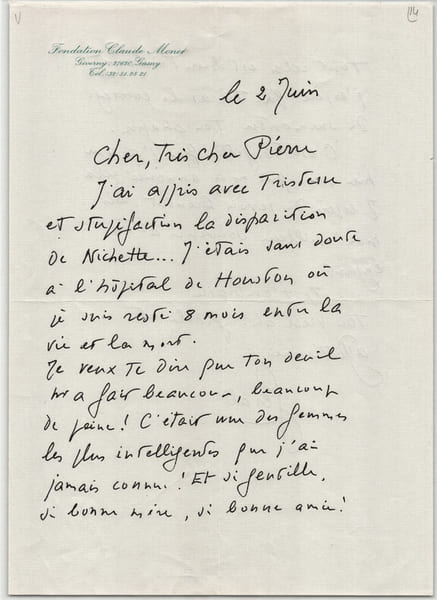 V
14
Fondation Claude Monet
Giverny. 27620 Gasny
Tél. : 32.51.28.21
le 2 Juin
Cher, Très cher Pierre
J'ai appris avec Tristesse
et stupéfaction la disparition
de Nichette... J'étais sans doute
à l'hôpital de Houston où
je suis resté 8 mois entre la
vie et la mort.
Je veux te dire que ton deuil
m'a fait beaucoup, beaucoup
de peine! C'était une des femmes
les plus intelligentes que j'ai
jamais connue! Et si gentille,
si bonne mère, si bonne amie!